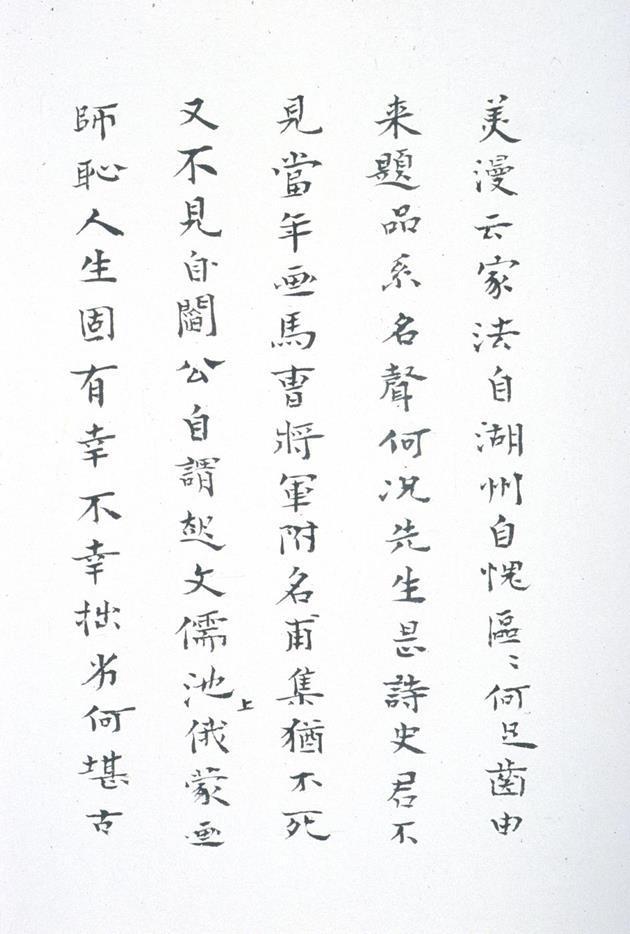 美漫云家法自湖州自愧區〻何足齒由
来題品系名聲何况先生是詩史君不
見當年画馬曹將軍附名甫集猶不死
又不見自閻公自謂起文儒池上俄蒙画
師恥人生固有幸不幸拙劣何堪古